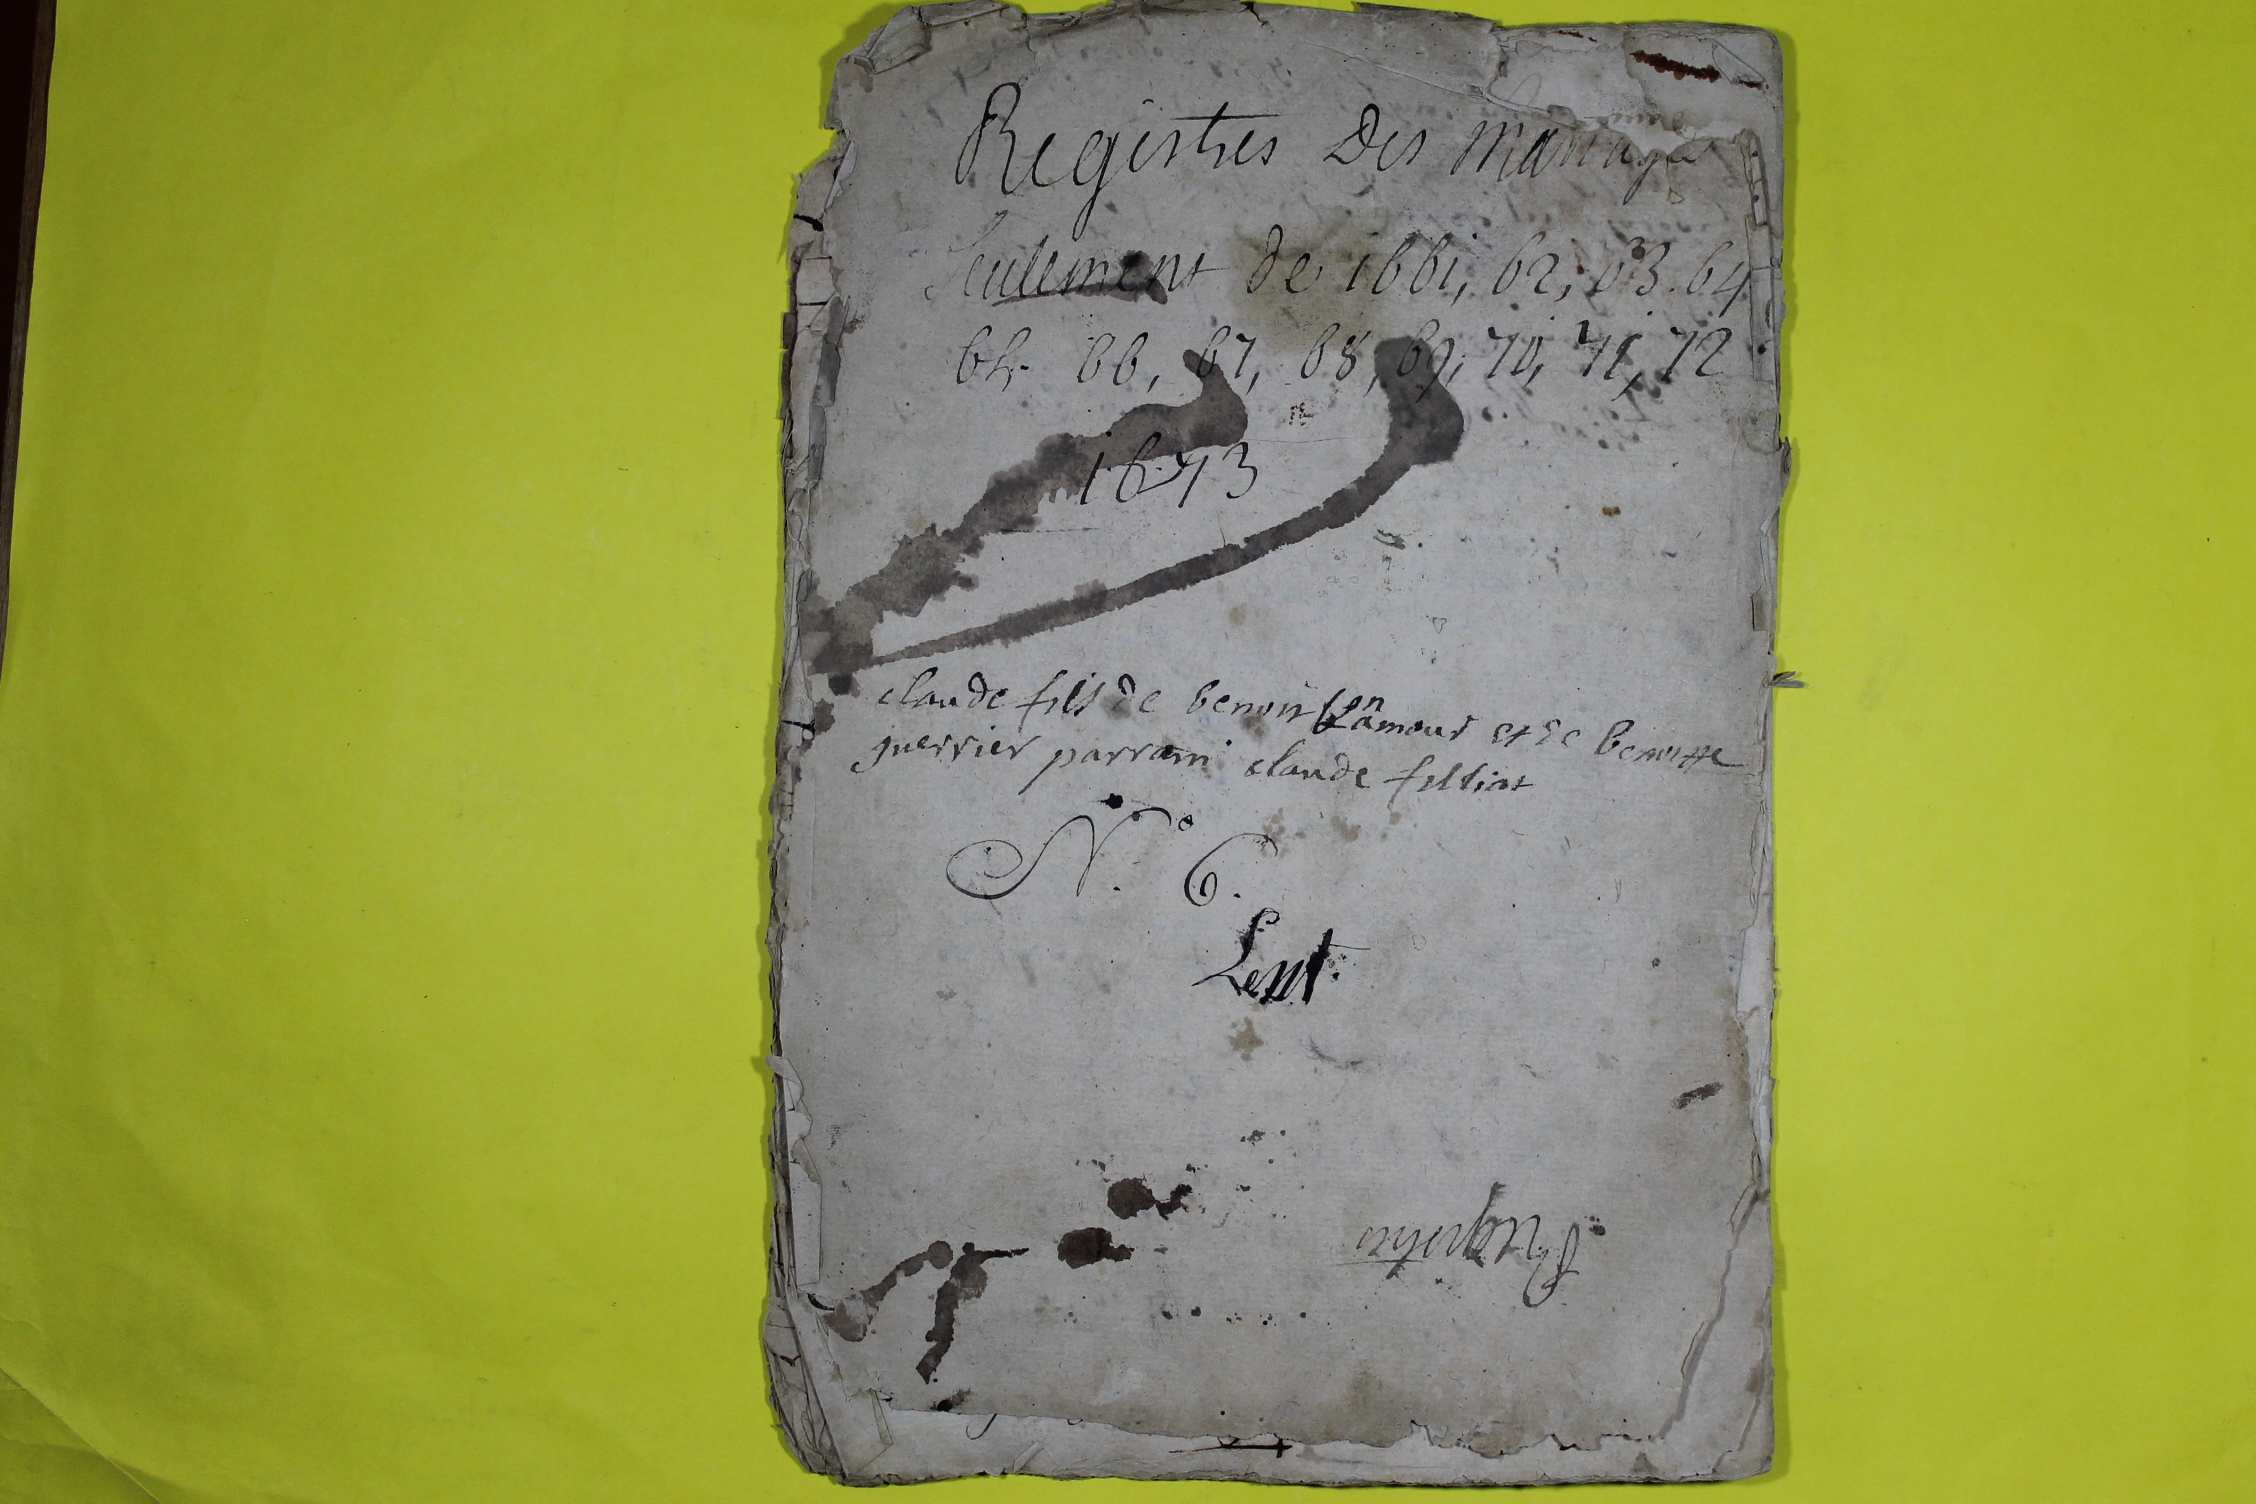 Registres Des mariages
Seulement de 1661, 62, 63. 64
65. 66, 67, 68, 69, 70, 71, 72
1673
claude fils de benoit lamour et de benoitte
guerrier parrain claude filliat
N.° 6.
Lent.